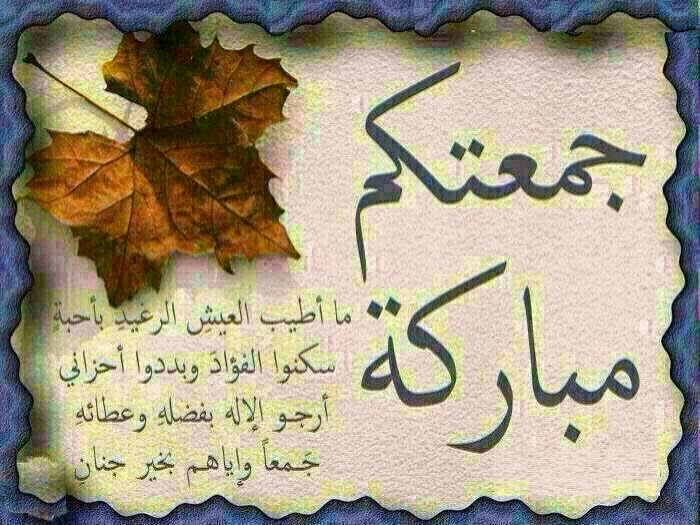 جمعتكم
مباركة
ما أطيب العيشِ الرغيدِ بأحبةٍ
سكنوا الفؤادَ وبددوا أحزاني
أرجـو الإله بفضلهِ وعطائهِ
جَـمعاً وإياهـم بخير جنان